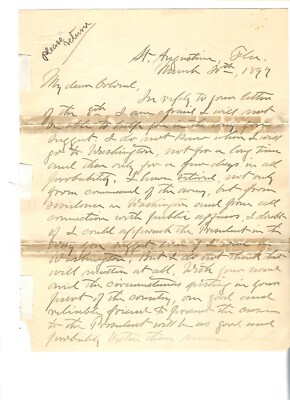 please
return
St. Augustine, Fla.
March 30th, 1897
My dear Colonel,
In reply to your letter
of the 8th I am afraid I will not
be able to help you in the way you
suggest. I do not know when I will
go to Washington not for a long time
and then only for a few days in all
probability. I have retired, not only
from command of the army, but from
residence in Washington and from all
connection with public affairs. I doubt
if I could approach the President in the
way you suggest even if I were in
Washington, but I do not think that
will matter at all. With your name
and the circumstances existing in your
part of the country, one good and
reliable friend to present the case
to the President will be as good and
probably better than more